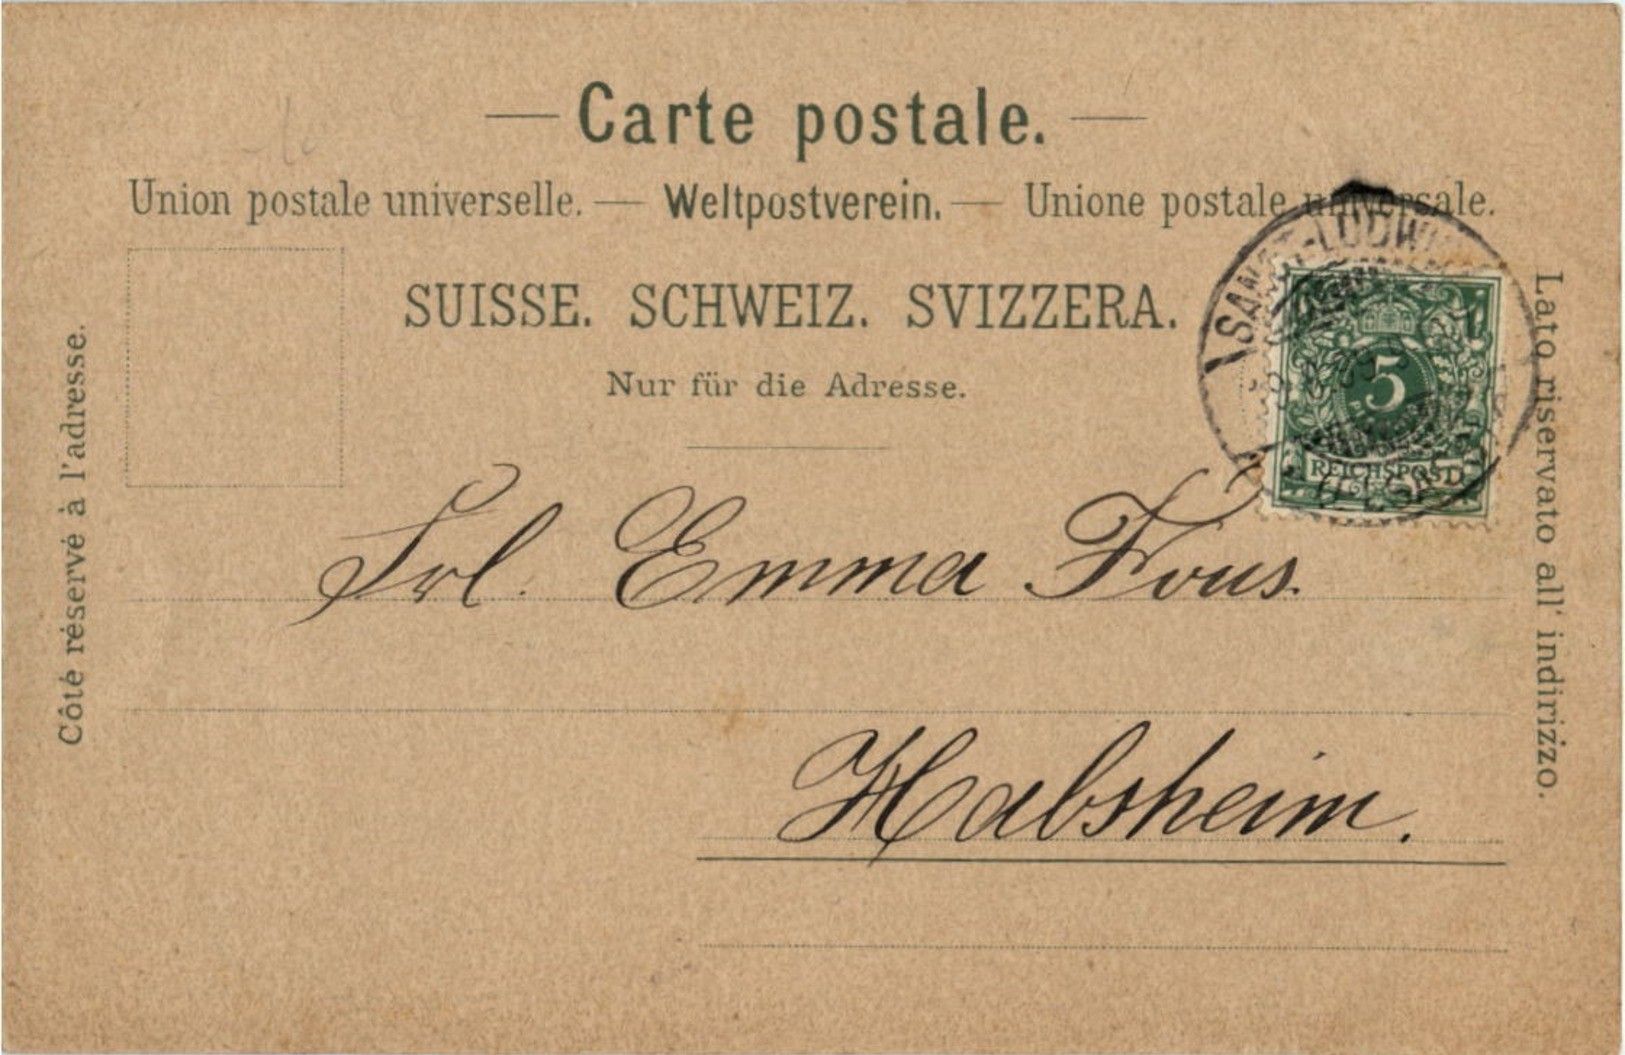 Carte postale.
Union postale universelle. — Weltpostverein. — Unione postale universale.
SUISSE. SCHWEIZ. SVIZZERA.
Nur für die Adresse.
Côté réservé à l'adresse.
Lato riservato all' indirizzo.
SANKT-LUDWIG
5
REICHSPOST
Frl. Emma Fous.
Habsheim.